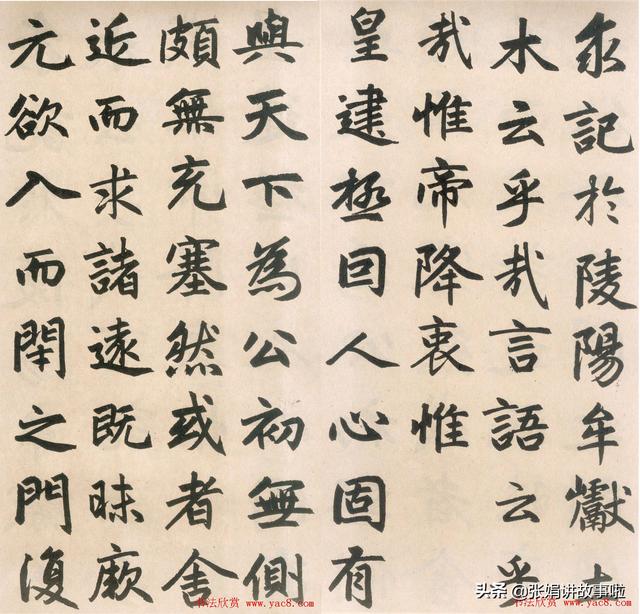 求記於陵陽牟巘土
木云乎哉言語云乎
哉惟帝降衷惟
皇建極囙人心固有
與天下為公初無側
頗無充塞然或者舍
近而求諸遠既昧厥
元欲入而閉之門復
书法欣赏 www.yac8.com
书法欣赏 www.yac8.com
头条 @张娟讲故事啦